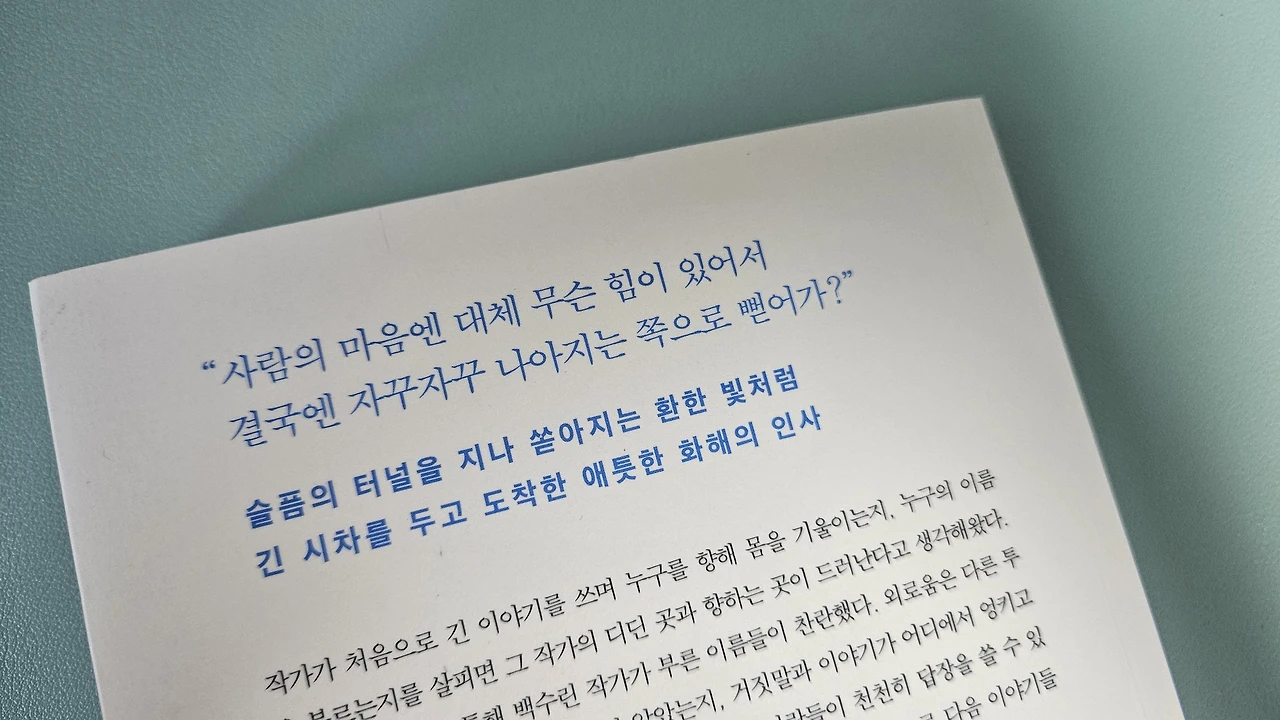 “사람의 마음엔 대체 무슨 힘이 있어서
결국엔 자꾸자꾸 나아지는 쪽으로 뻗어가?”
슬픔의 터널을 지나 쏟아지는 환한 빛처럼
긴 시차를 두고 도착한 애틋한 화해의 인사
작가가 처음으로 긴 이야기를 쓰며 누구를 향해 몸을 기울이는지, 누구의 이름
부르는지를 살피면 그 작가의 디딘 곳과 향하는 곳이 드러난다고 생각해왔다.
백수린 작가가 부른 이름들이 찬란했다. 외로움은 다른 투
않았는지, 거짓말과 이야기가 어디에서 엉키고
천천히 답장을 쓸 수 있
다음 이야기들